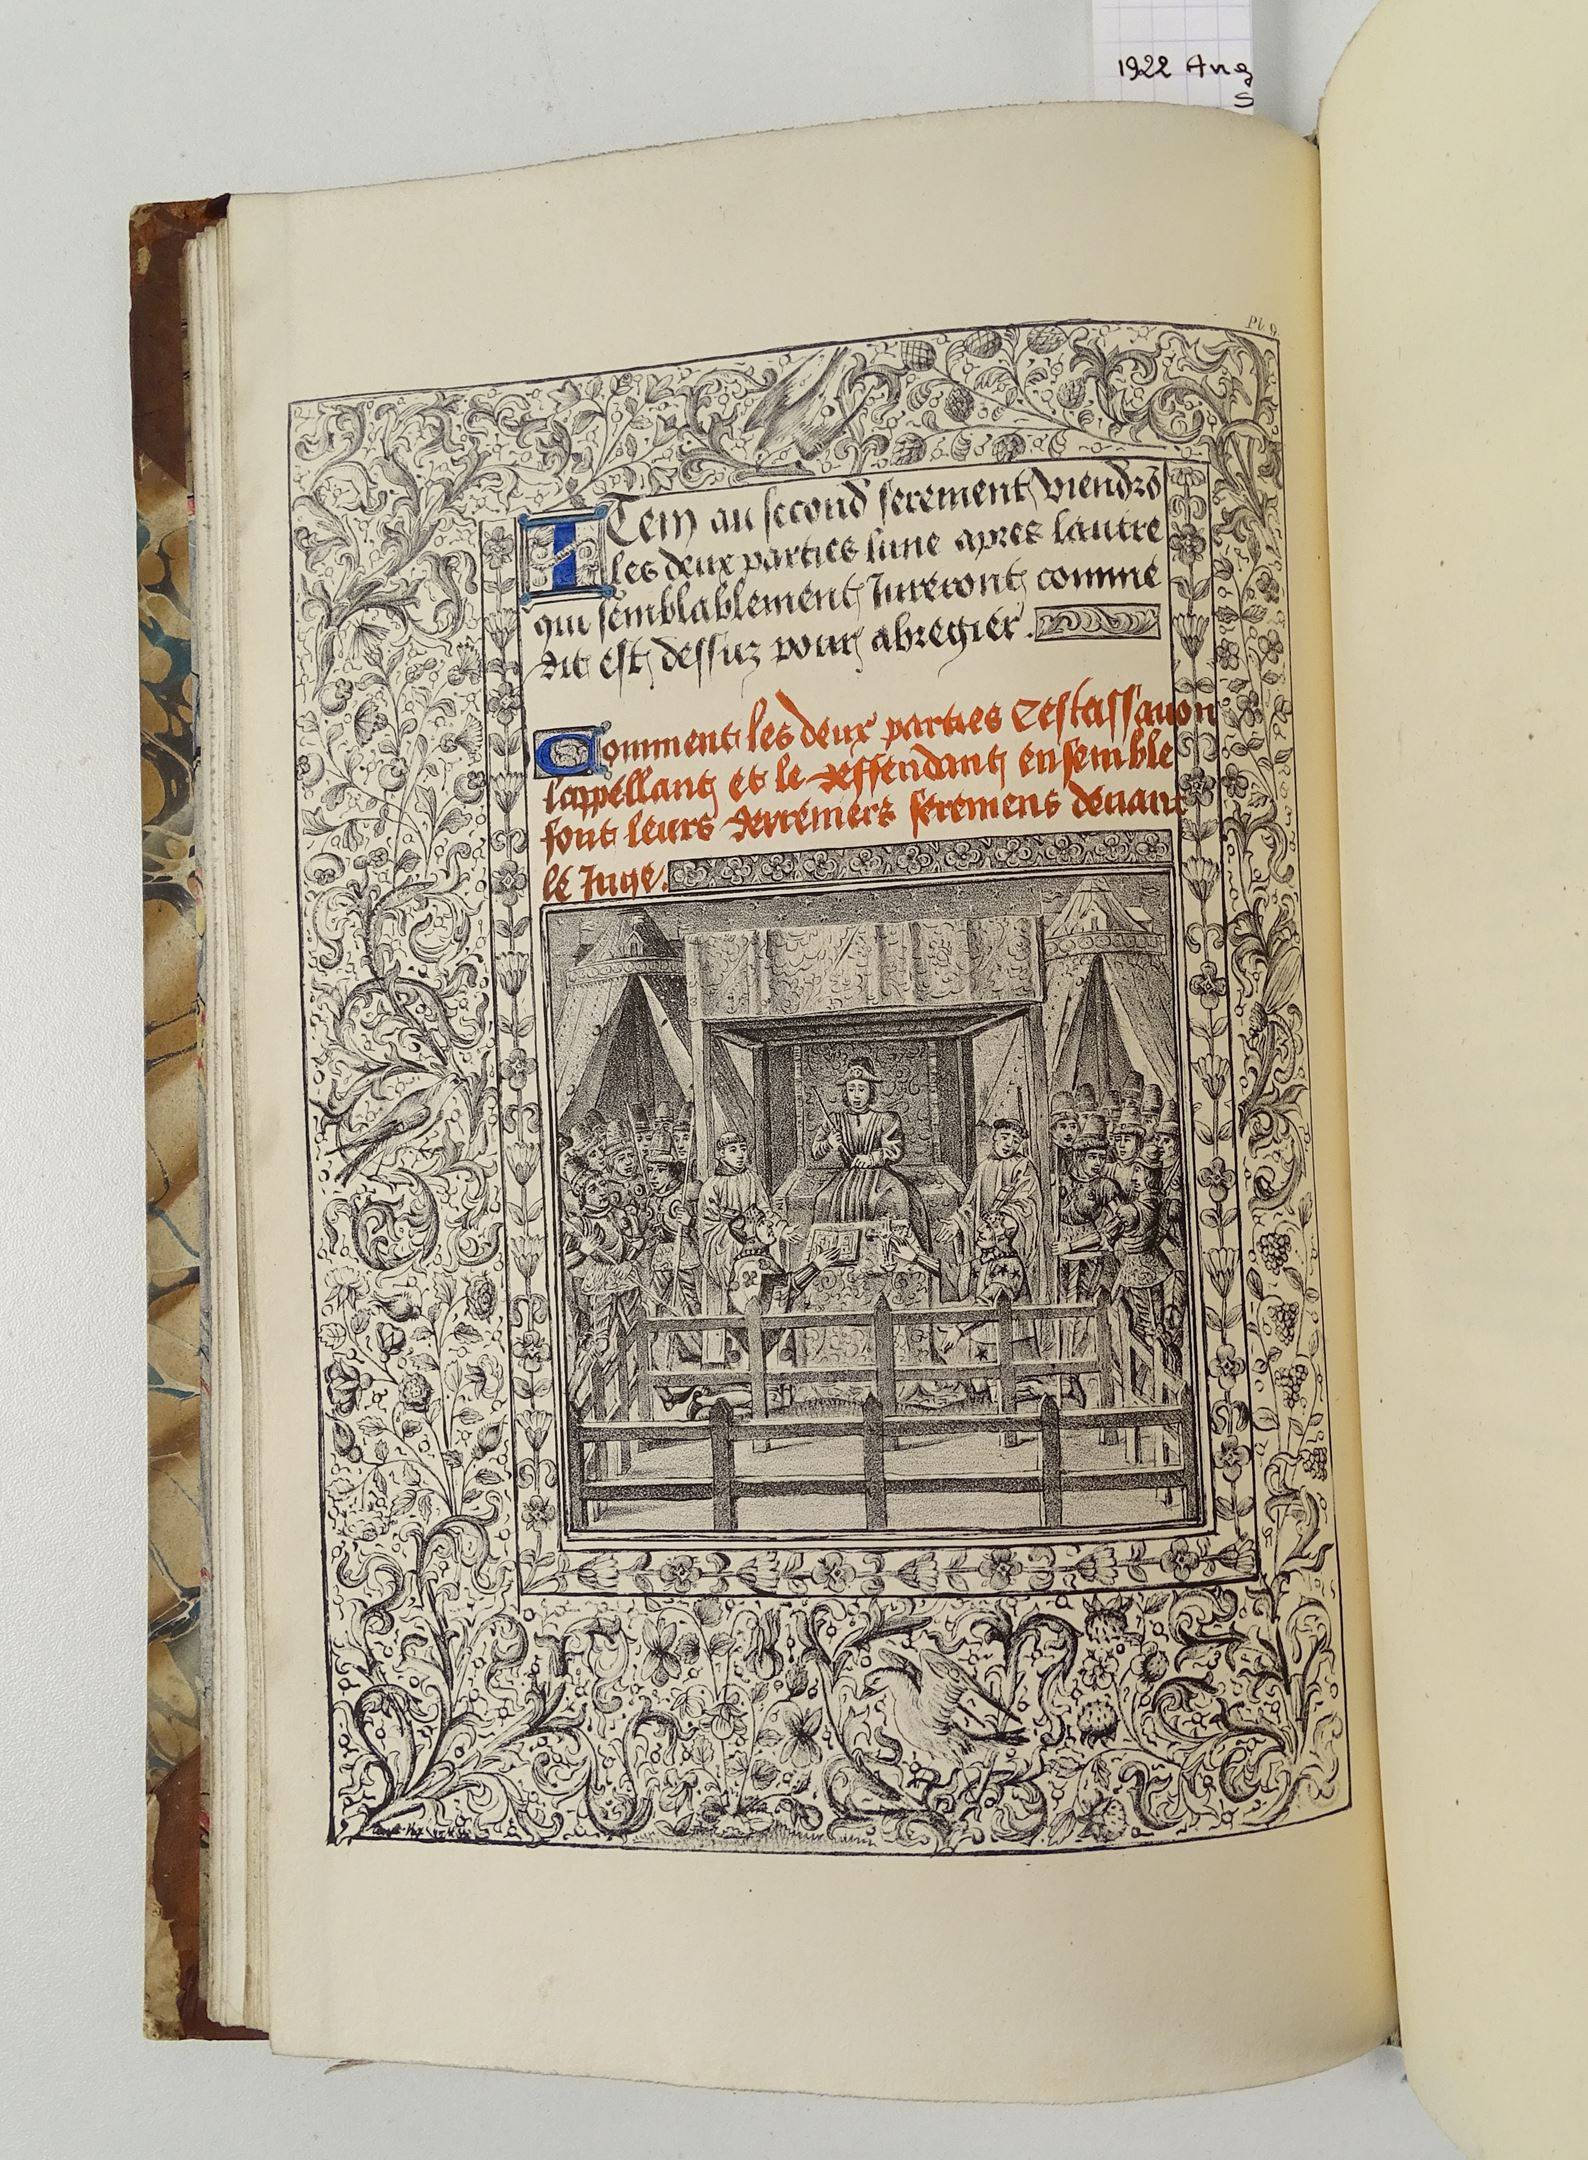 1922 Ang
S
Pl. 9
ITem au second serement viendrõ
les deux parties lune apres lautre
qui semblablement Jureront comme
dit est dessuz pour abregier.
Comment les deux parties Cestassauon
lappellant et le deffendant ensemble
font leurs derreniers seremens deuant
le Juge.